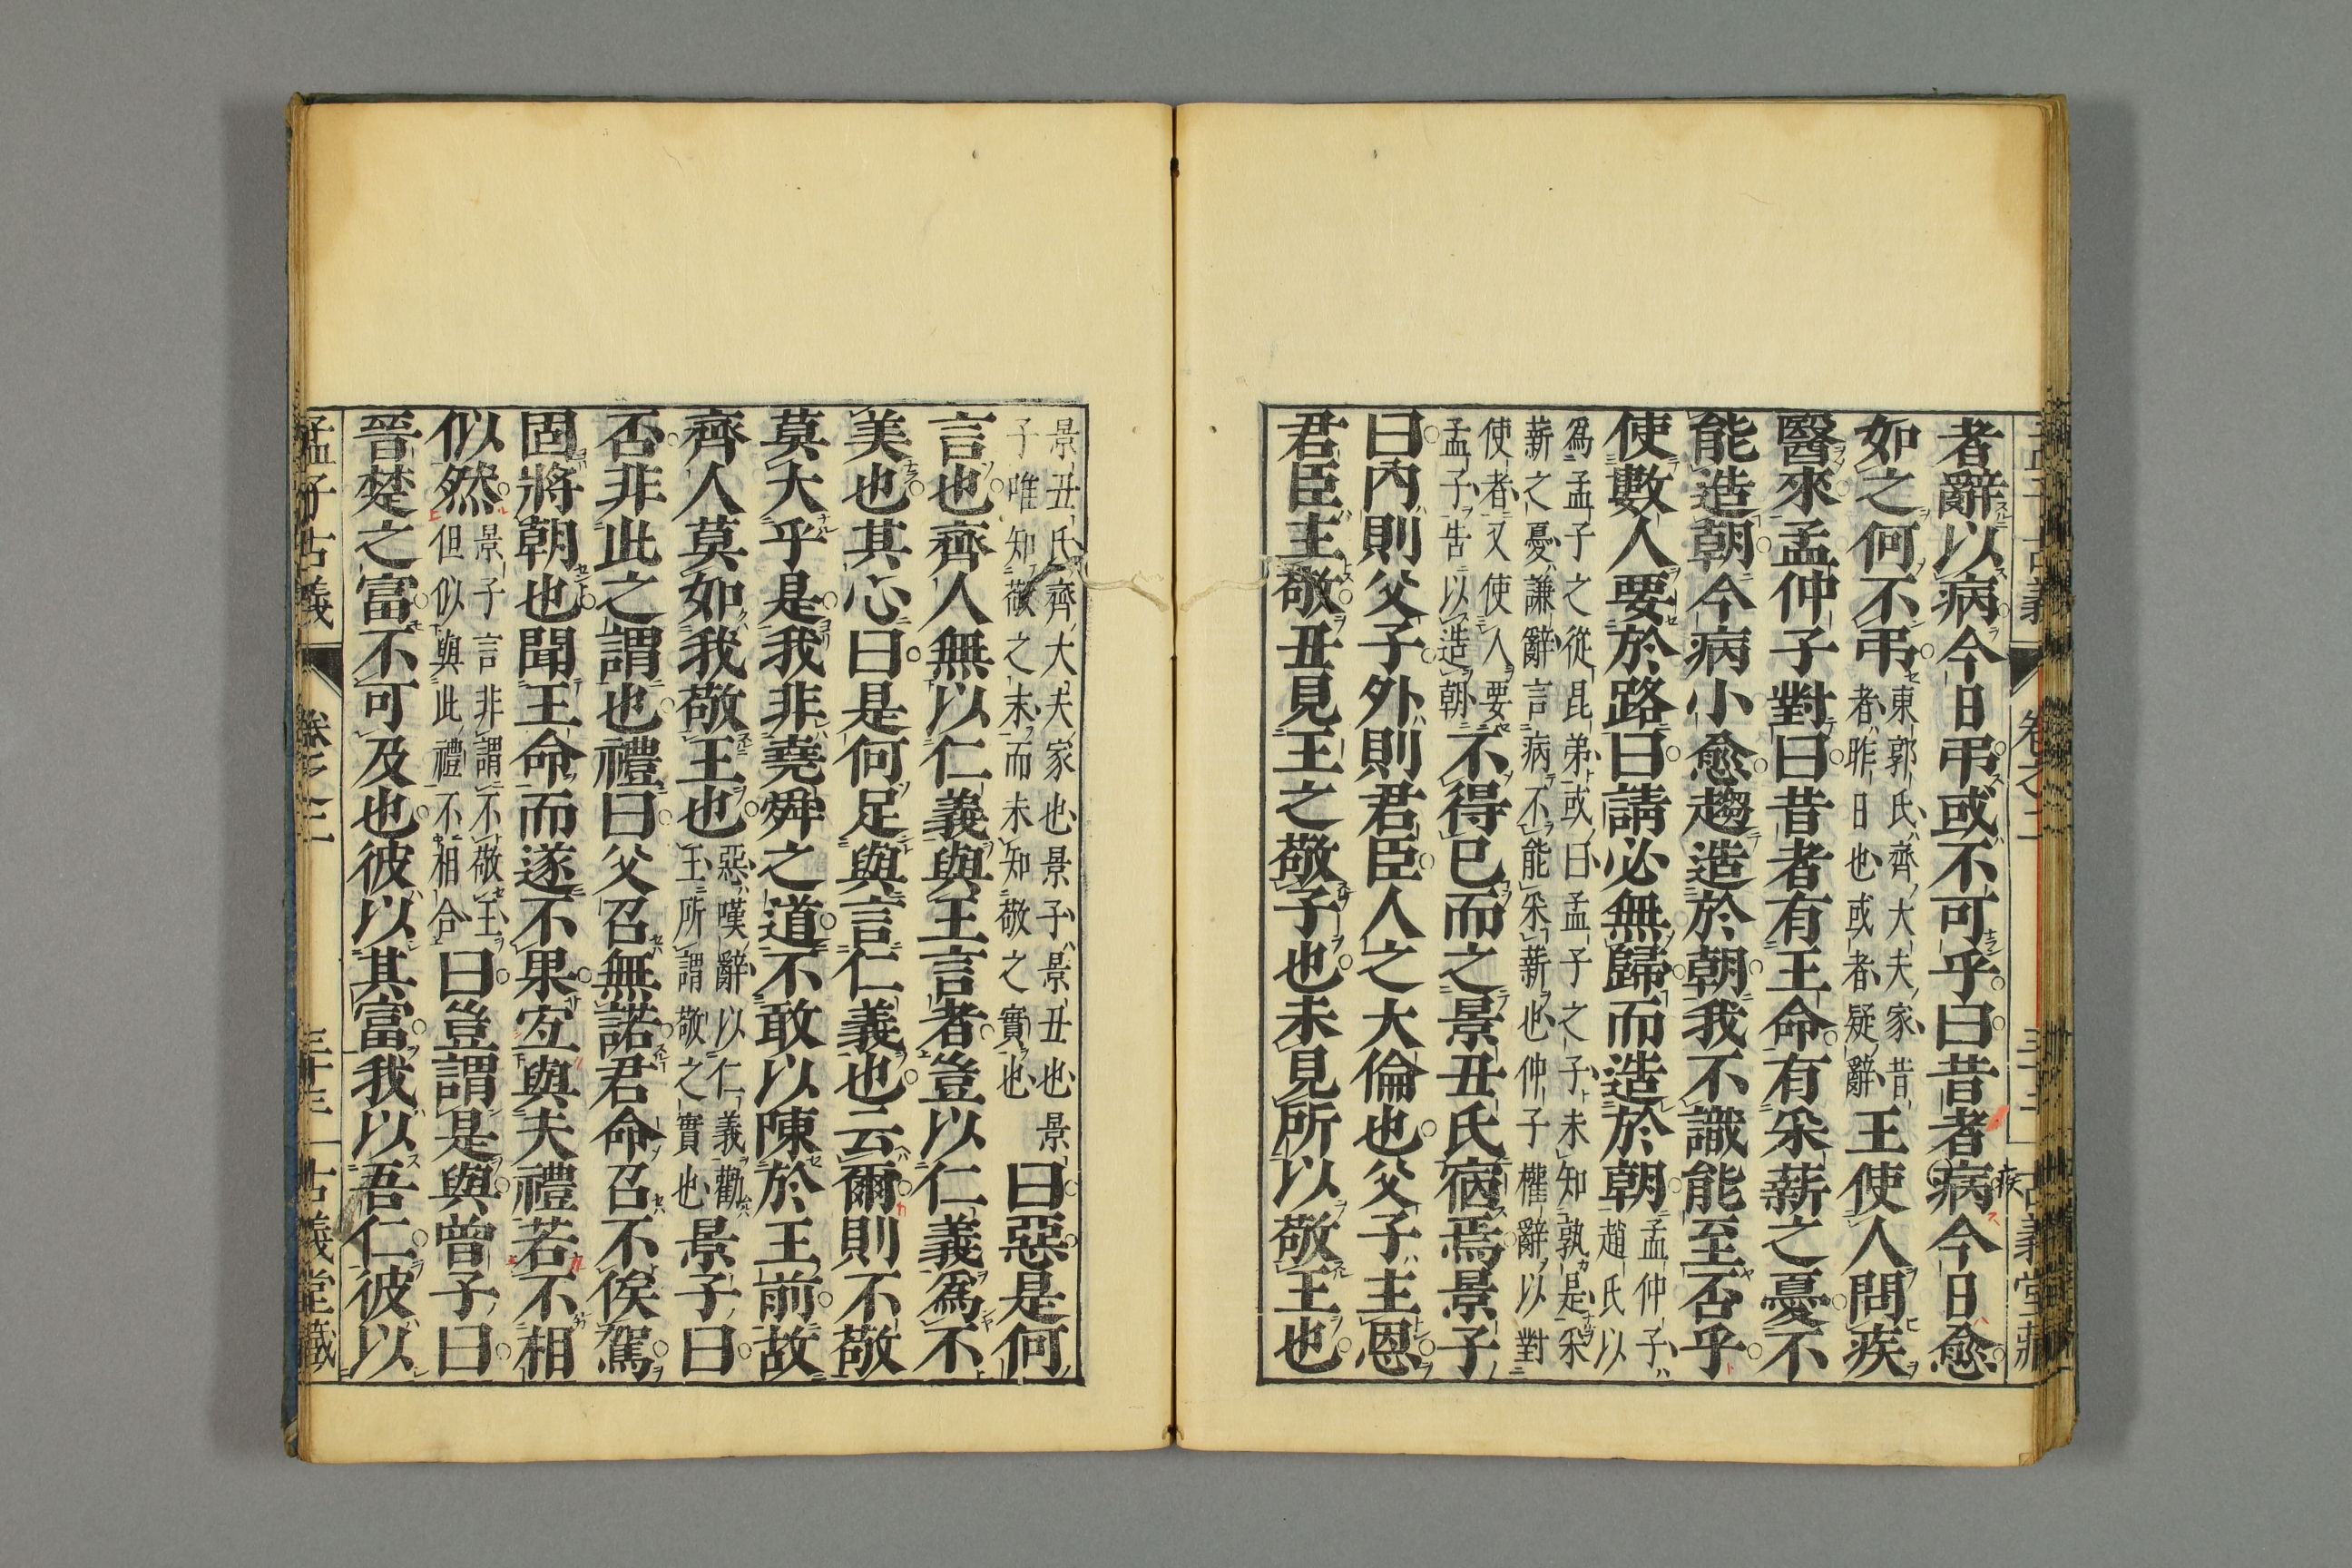 者辭以病今日弔或不可乎曰昔者病今日愈
疾
如之何不弔東郭氏齊大夫家昔
者昨日也或者疑辭王使人問疾
醫來孟仲子對曰昔者有王命有采薪之憂不
能造朝今病小愈趨造於朝我不識能至否乎
使數人要於路曰請必無歸而造於朝孟仲子
趙氏以
爲孟子之從昆弟或曰孟子之子未知孰是采
薪之憂謙辭言病不能采薪也仲子權辭以對
使者又使人要
孟子告以造朝不得已而之景丑氏宿焉景子
曰內則父子外則君臣人之大倫也父子主恩
君臣主敬丑見王之敬子也未見所以敬王也
景丑氏齊大夫家也景子景丑也景
子唯知敬之末而未知敬之實也曰惡是何
言也齊人無以仁義與王言者豈以仁義爲不
美也其心曰是何足與言仁義也云爾則不敬
莫大乎是我非堯舜之道不敢以陳於王前故
齊人莫如我敬王也惡嘆辭以仁義勸
王所謂敬之實也景子曰
否非此之謂也禮曰父召無諾君命召不俟駕
固將朝也聞王命而遂不果宐與夫禮若不相
似然景子言非謂不敬王
但似與此禮不相合曰豈謂是與曾子曰
晉楚之富不可及也彼以其富我以吾仁彼以
孟子古義 卷之二 三十三 古義堂藏